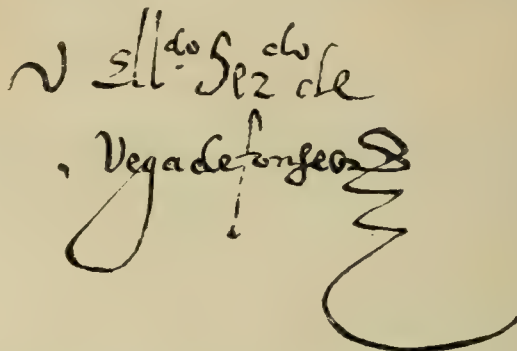 Ell.do Her.do de
Vega de fonseca